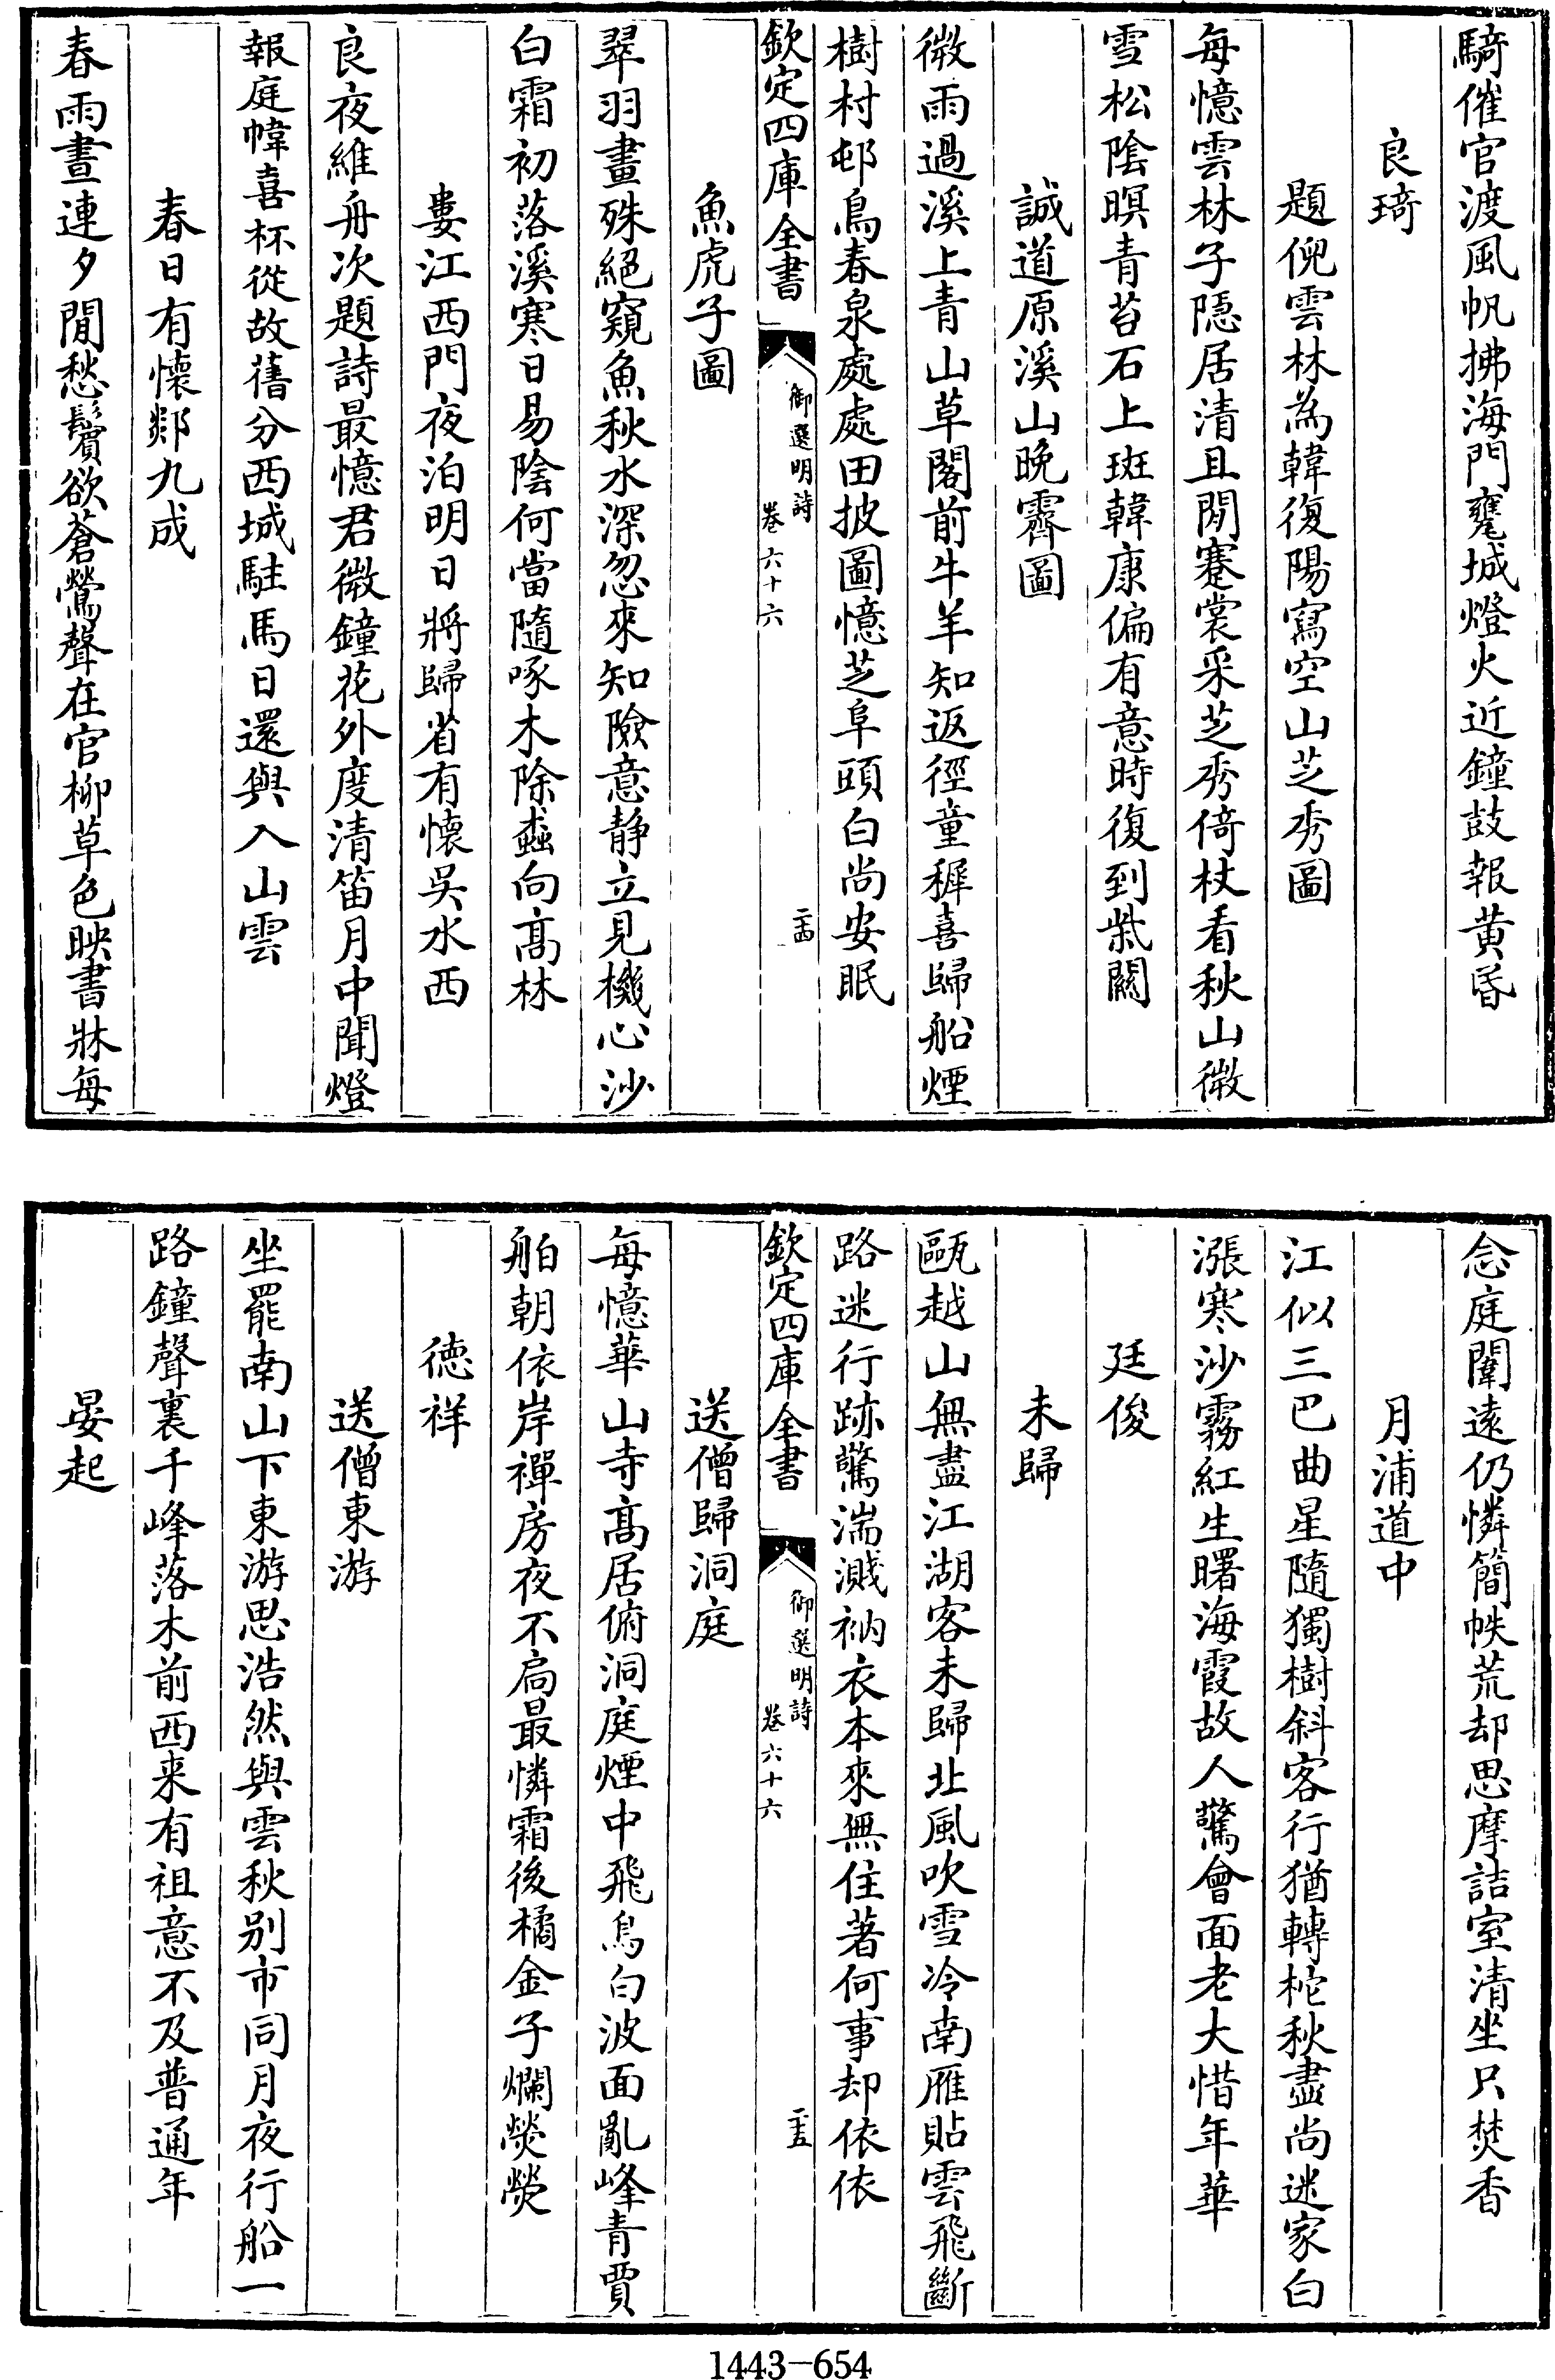 騎催官渡風帆拂海門甕城燈火近鐘鼓報黄昏
良琦
題倪雲林為韓復陽寫空山芝秀圖
每憶雲林子隱居清且閒蹇裳采芝秀倚杖看秋山微
雪松陰暝青苔石上斑韓康偏有意時復到柴關
誠道原溪山晚霽圖
微雨過溪上青山草閣前牛羊知返徑童穉喜歸船煙
樹村邨鳥春泉處處田披圖憶芝阜頭白尚安眠
欽定四庫全書
御選明詩
卷六十六
二十四
魚虎子圖
翠羽畫殊絕窺魚秋水深忽來知險意静立見機心沙
白霜初落溪寒日易陰何當隨啄木除蠹向髙林
婁江西門夜泊明日將歸省有懷吳水西
良夜維舟次題詩最憶君微鐘花外度清笛月中聞燈
報庭幃喜杯從故舊分西城駐馬日還與入山雲
春日有懷郯九成
春雨晝連夕閒愁鬢欲蒼鶯聲在官柳草色映書牀每
念庭闈遠仍憐簡帙荒却思摩詰室清坐只焚香
月浦道中
江似三巴曲星隨獨樹斜客行猶轉柁秋盡尚迷家白
漲寒沙霧紅生曙海霞故人驚會面老大惜年華
廷俊
未歸
甌越山無盡江湖客未歸北風吹雪冷南雁貼雲飛斷
路迷行跡驚湍濺衲衣本來無住著何事却依依
欽定四庫全書
御選明詩
卷六十六
二十五
送僧歸洞庭
每憶華山寺髙居俯洞庭煙中飛鳥白波面亂峰青賈
舶朝依岸禪房夜不扃最憐霜後橘金子爛熒熒
德祥
送僧東游
坐罷南山下東游思浩然與雲秋别市同月夜行船一
路鐘聲裏千峰落木前西来有祖意不及普通年
晏起
1443-654